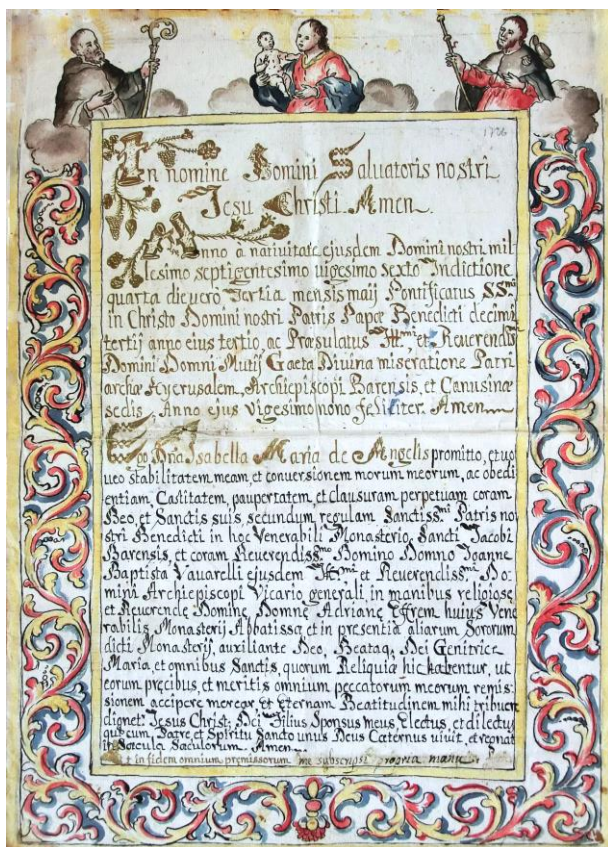 1726
In nomine Domini Saluatoris nostri
Jesu Christi Amen.
Anno a nativitate ejusdem Domini nostri mil=
lesimo septigentesimo vigesimo sexto Indictione
quarta die vero Tertia mensis maij Pontificatus SS.mi
in Christo Domini nostri Patris Papæ Benedicti decimi
tertij anno eius tertio, ac Præsulatus Ill.mi et Reuerendis.mi
Domini Domni Mutij Gaeta Divina miseratione Patri
archæ Hyerusalem, Archiepiscopi Barensis, et Canusinæ
sedis, Anno ejus Vigesimo nono feliciter. Amen
Ego D.na Isabella Maria de Angelis promitto, et vo
ueo stabilitatem meam, et conversionem morum meorum, ac obedi
entiam, Castitatem, paupertatem, et clausuram perpetuam coram
Deo, et Sanctis suis secundum regulam Sanctiss.mi Patris no
stri Benedicti in hoc Venerabili Monasterio Sancti Jacobi
Barensis, et coram Reuerendiss.mo Domino Domno Joanne
Baptista Vauarelli ejusdem Ill.mi et Reuerendiss.mi Do=
mini Archiepiscopi Vicario generali, in manibus religiosę
et Reuerendę Dominę, Domnę Adrianę Effrem huius Vene
rabilis Monasterij Abbatissę, et in pręsentia aliarum Sororum
dicti Monasterij, auxiliante Deo, Beataq, Dei Genitrice
Maria, et omnibus Sanctis, quorum Reliquię hic habentur, ut
eorum pręcibus, et meritis omnium peccatorum meorum remis=
sionem accipere merear, et Eternam Beatitudinem mihi tribuere
dignet Jesus Christ, Dei Filius Sponsus meus Electus, et dilectus
qui cum Patre, et Spiritu Sancto unus Deus Cæternus vivit, et regnat
in Sæcula Sæculorum. Amen
Et in fidem omnium pręmissorum me subscripsi propria manu